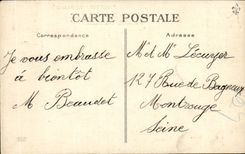 CARTE POSTALE
Correspondance
Adresse
Je vous embrasse
à bientôt
M Beaudet
Mr et Me Lecuyer
127 Rue de Bagneux
Montrouge
Seine